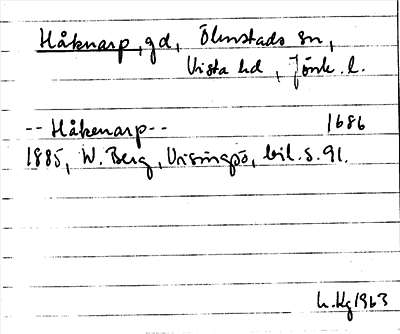 Håknarp, gd, Ölmstads sn,
Vista hd, Jönk. l.
-- Håkenarp -- 1686
1885, W. Berg, Visingsö, bil. s. 91.
1963